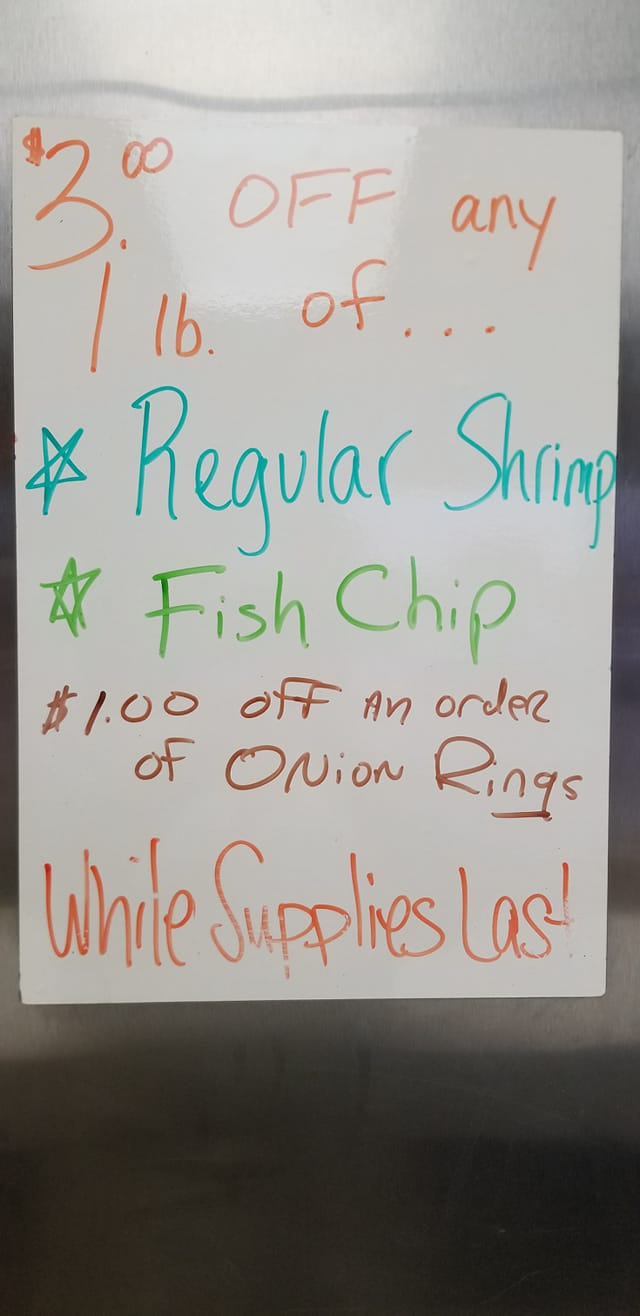 $3.00 OFF any
1 lb. of...
Regular Shrimp
Fish Chip
$1.00 off An order
of Onion Rings
While Supplies Last